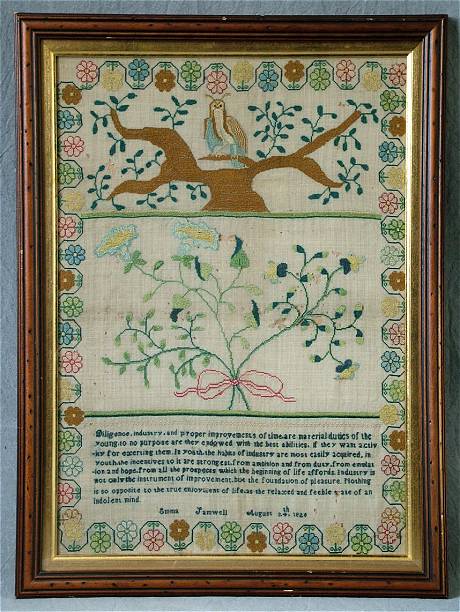 Diligence, industry, and proper improvements of time, are material duties of the
young, to no purpose are they endowed with the best abilities, if they want activ
ity for exerting them. In youth, the habits of industry are most easily acquired, in
youth, the incentives to it are strongest, from ambition and from duty, from emulat
ion and hope, from all the prospects which the beginning of life affords. Industry is
not only the instrument of improvement, but the foundation of pleasure. Nothing
is so opposite to the true enjoyment of life, as the relaxed and feeble state of an
indolent mind.
Emma Jamwell August 24th 1826